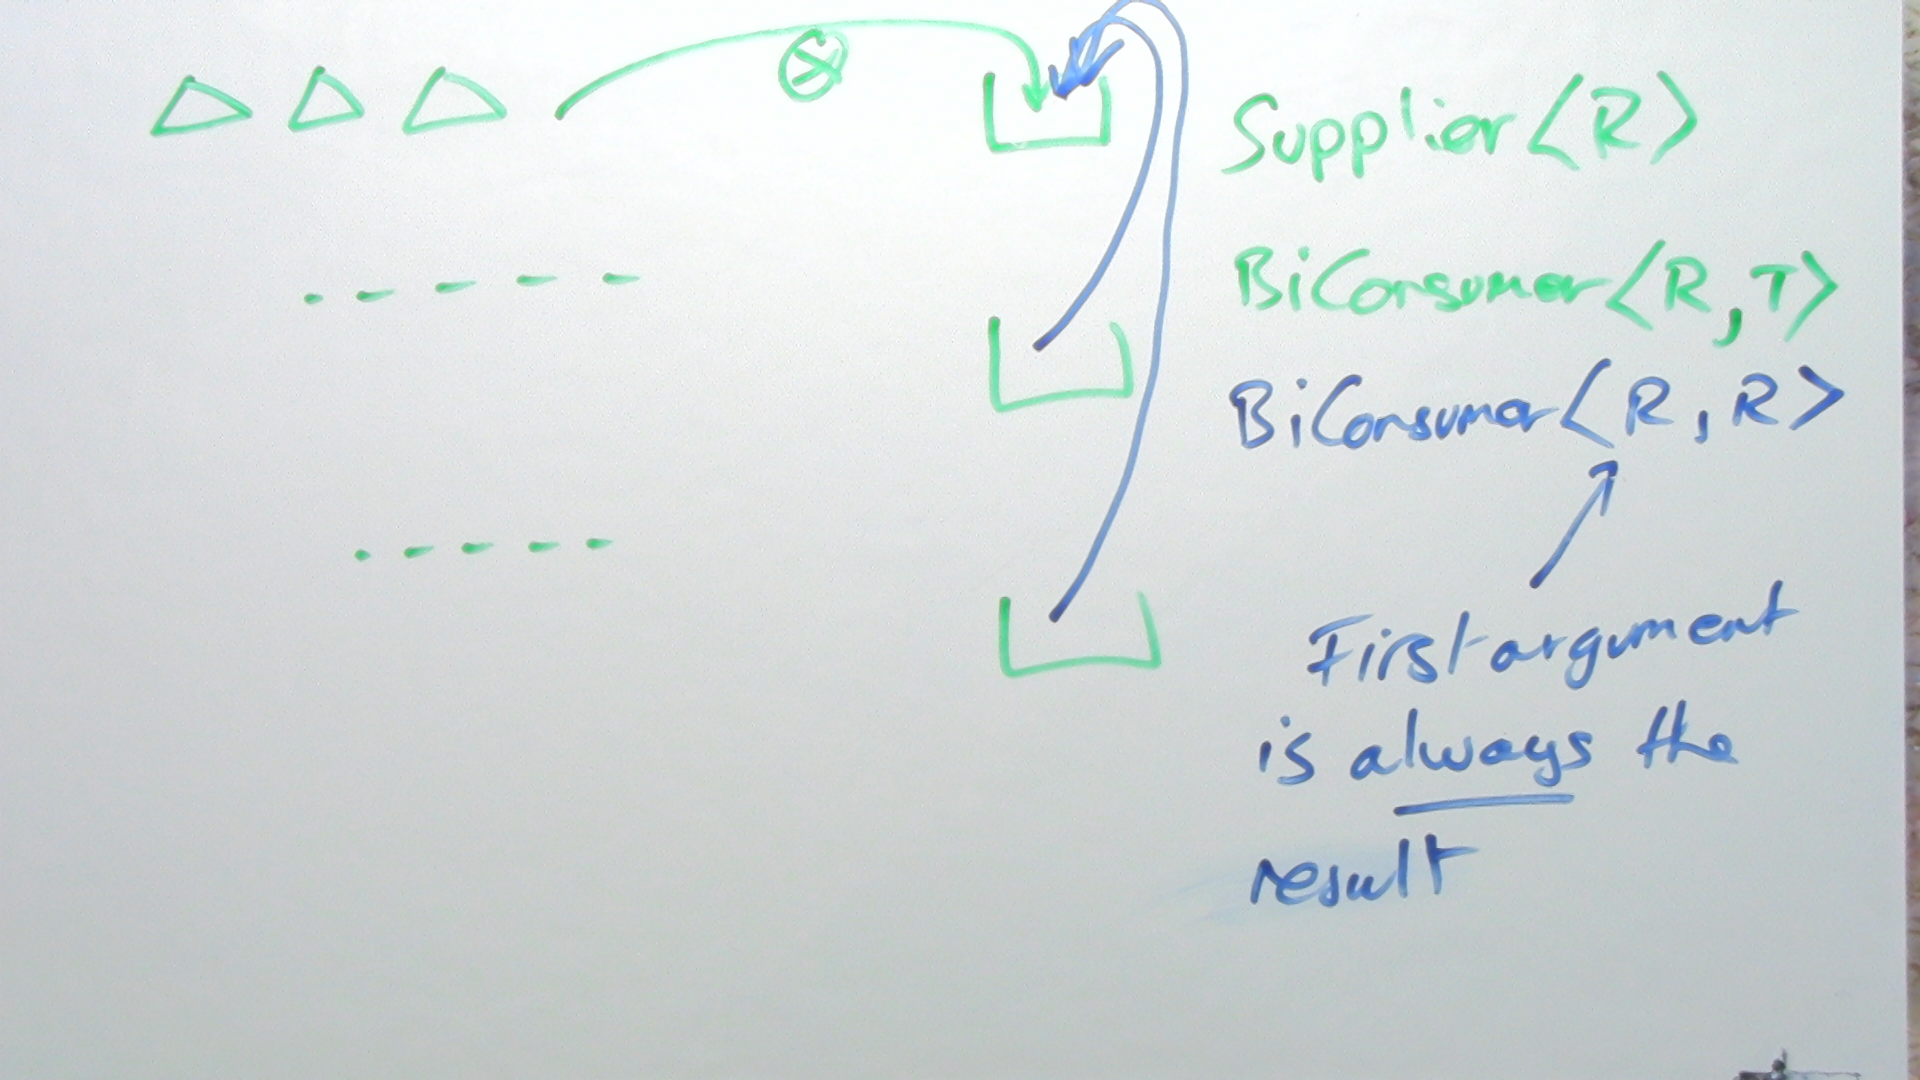 Supplier<R>
BiConsumer<R,T>
BiConsumer<R,R>
First argument
is always the
result